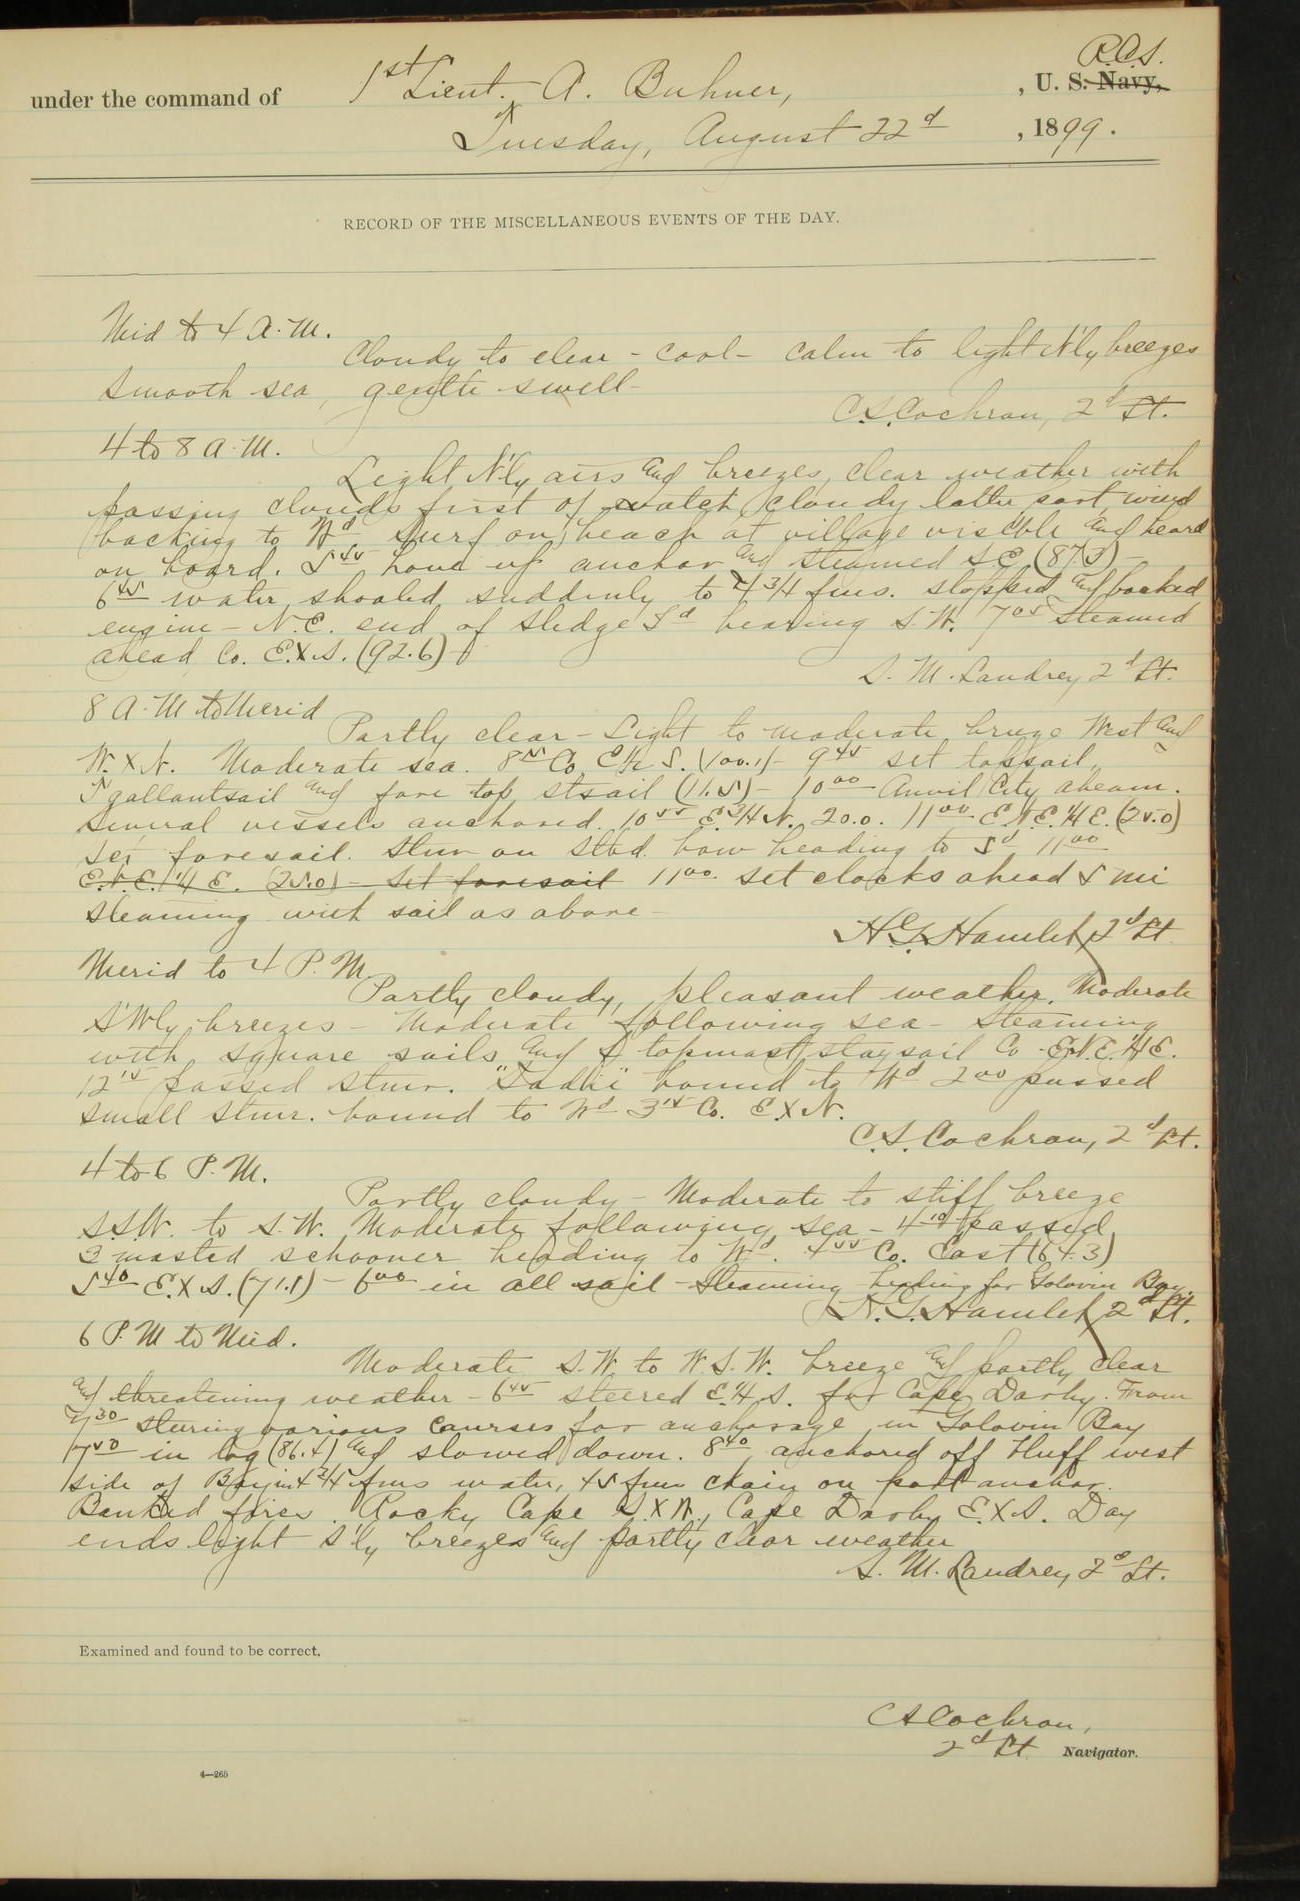 R.C.S.
under the command of 1st Lieut. A. Buhner, , U. S. Navy,
Tuesday, August 22d , 1899.
RECORD OF THE MISCELLANEOUS EVENTS OF THE DAY.
Mid to 4 A.M.
Cloudy to clear - cool - calm to light N'ly breezes
smooth sea, gentle swell -
C.S. Cochran, 2d Lt.
4 to 8 A.M.
Light N'ly airs and breezes, clear weather with
passing clouds first of watch, cloudy latter part, wind
backing to Wd. Surf on beach at village visible and heard
on board. 5 45 hove up anchor and steamed S.E. (87.3) -
6 45 water shoaled suddenly to 4 3/4 fms. stopped and backed
engine - N.E. end of Sledge Id bearing S.W. 7 05 steamed
ahead, Co. E.X.S. (92.6) -
S. M. Landrey 2d Lt.
8 A.M. to Merid
Partly clear - Light to moderate breeze West and
W. X N. Moderate sea. Co (100.1) - 9 45 set topsail,
gallantsail and fore top stsail (11.5) - 10 00 Anvil City abeam.
Several vessels anchored. 10 55 E 3/4 N. 20.0. 11 00 E.N.E. 1/4 E. (25.0)
set foresail. Stmr on Stbd. bow heading to Sd 11 00
E.N.E. 1/4 E. (25.0) - Set foresail 11 00 set clocks ahead 5 mi
Steaming with sail as above -
H.G. Hamlet, 2d Lt.
Merid to 4 P.M.
Partly cloudy, pleasant weather. Moderate
S'Wly breezes - Moderate following sea - Steaming
with square sails and f topmast staysail Co. E.N.E. 1/4 E.
12 15 passed stmr. "Sadie" bound to Wd 2 00 passed
small stmr. bound to Wd 3 15 Co. E. X N.
C.S. Cochran, 2d Lt.
4 to 6 P.M.
Partly cloudy - Moderate to stiff breeze
S.S.W. to S.W. Moderate following sea - 4 10 passed
3 masted schooner heading to Wd. 4 55 Co. East (64.3)
5 40 E. X S. (71.1) - 6 00 in all sail - Steaming heading for Golovin Bay.
H.G. Hamlet, 2d Lt.
6 P.M to Mid.
Moderate S.W. to W.S.W. breeze and partly clear
and threatening weather - 6 45 steered E. 1/4 S. for Cape Darby. From
7 30 steering various courses for anchorage in Golovin Bay
7 50 in log (86.4) and slowed down. 8 40 anchored off bluff west
side of Bay in 4 3/4 fms water, 45 fms chain on port anchor.
Banked fires. Rocky Cape S. X W., Cape Darby E. X S. Day
ends light S'ly breezes and partly clear weather
S. M. Landrey 2d Lt.
Examined and found to be correct.
C S Cochran,
2d Lt Navigator.
4—265